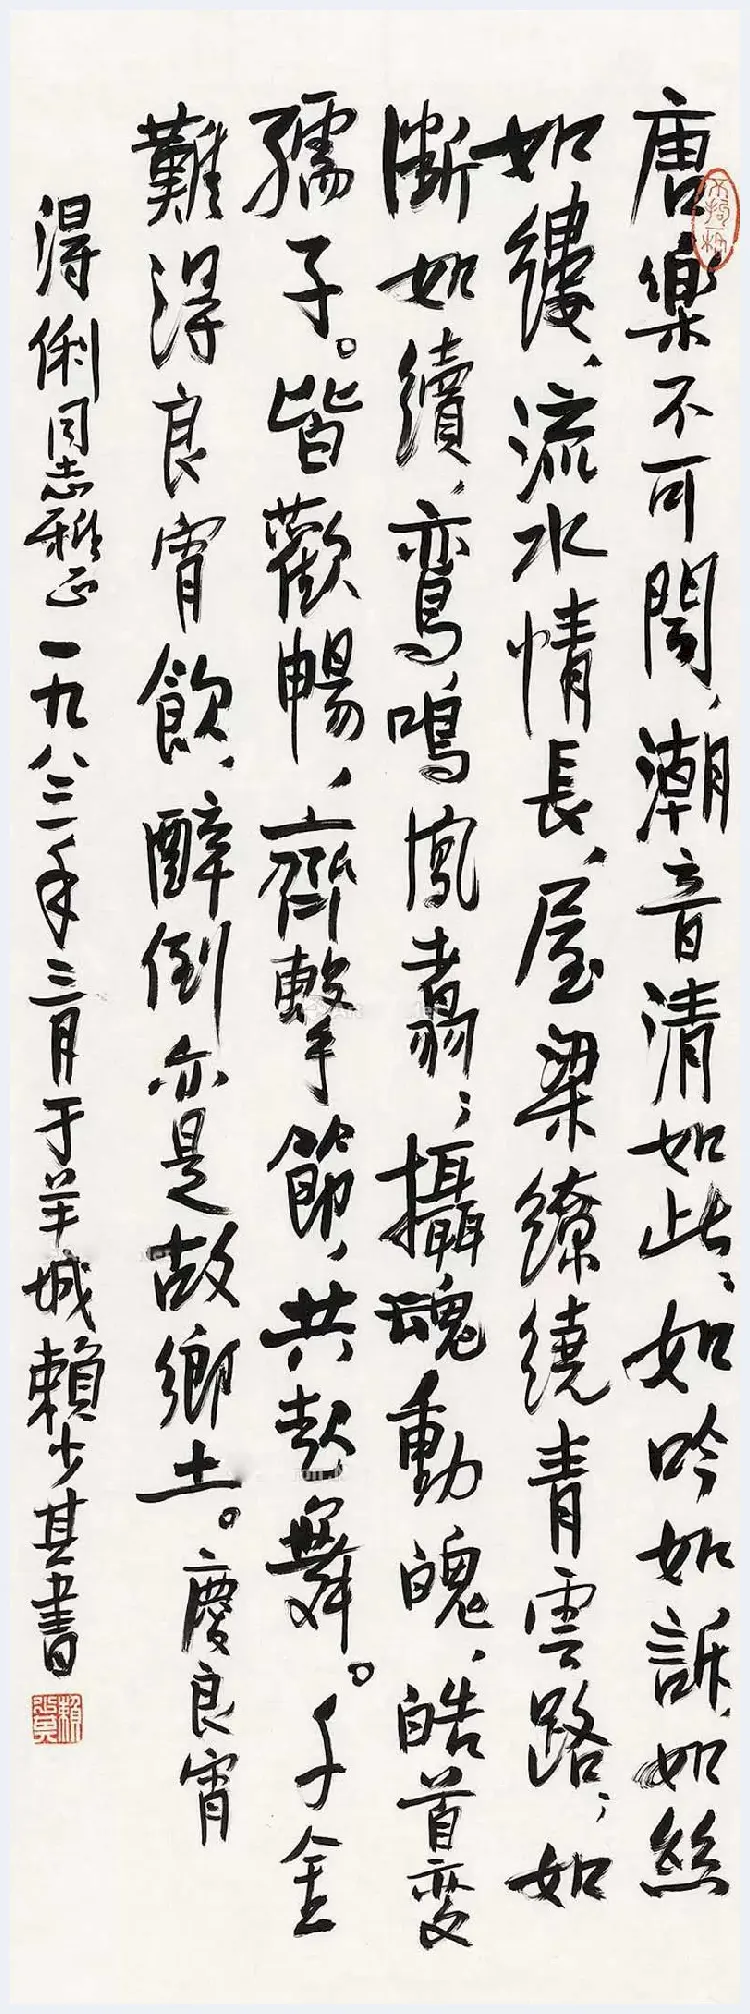 唐樂不可聞、潮音清如此、如吟如訴、如絲
如縷、流水情長、屋梁繚繞青雲路、如
斷如續、鸾鳴鳳翥、攝魂動魄、皓首变
孺子。皆歡暢、齊擊節、共起舞。千金
難得良宵飲、醉倒亦是故鄉土。慶良宵
得俐同志雅正一九八三年三月于羊城賴少其書